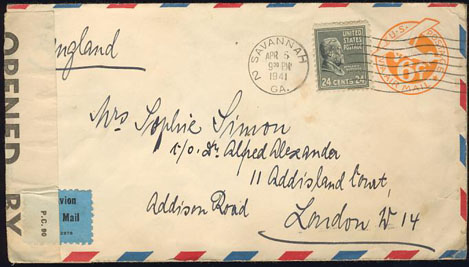 OPENED BY
P.C. 90
England
SAVANNAH
2
APR 5
1941
GA.
UNITED STATES
POSTAGE
24 CENTS 24
U.S. POSTAGE
6¢
AIR MAIL
Mrs Sophie Simon
c/o. Dr. Alfred Alexander
11 Addisland Court,
Addison Road
London W 14
vion
Mail